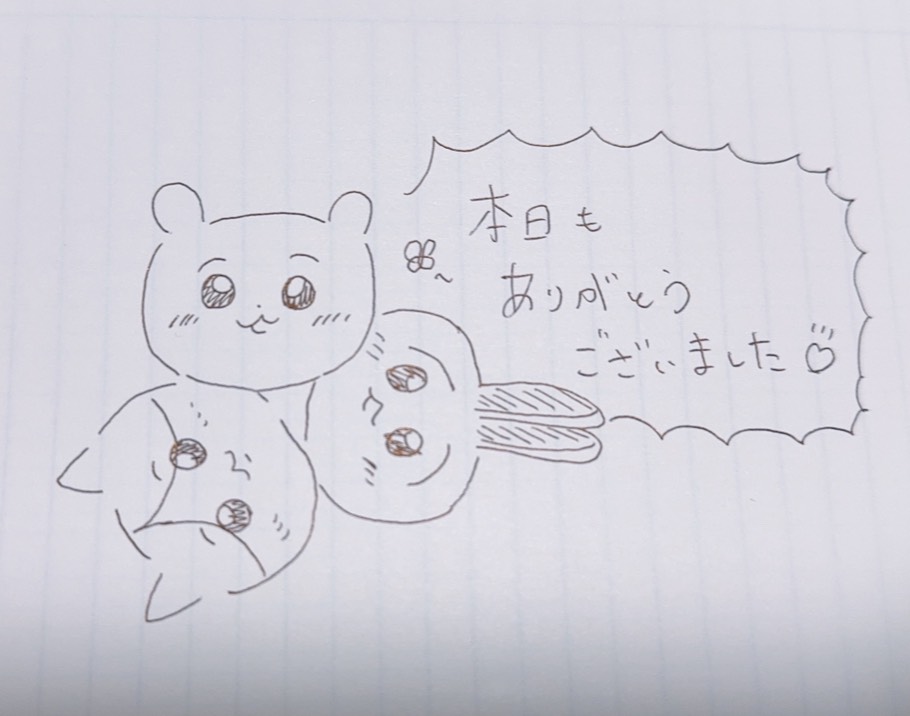 本日も
ありがとう
ございました♡